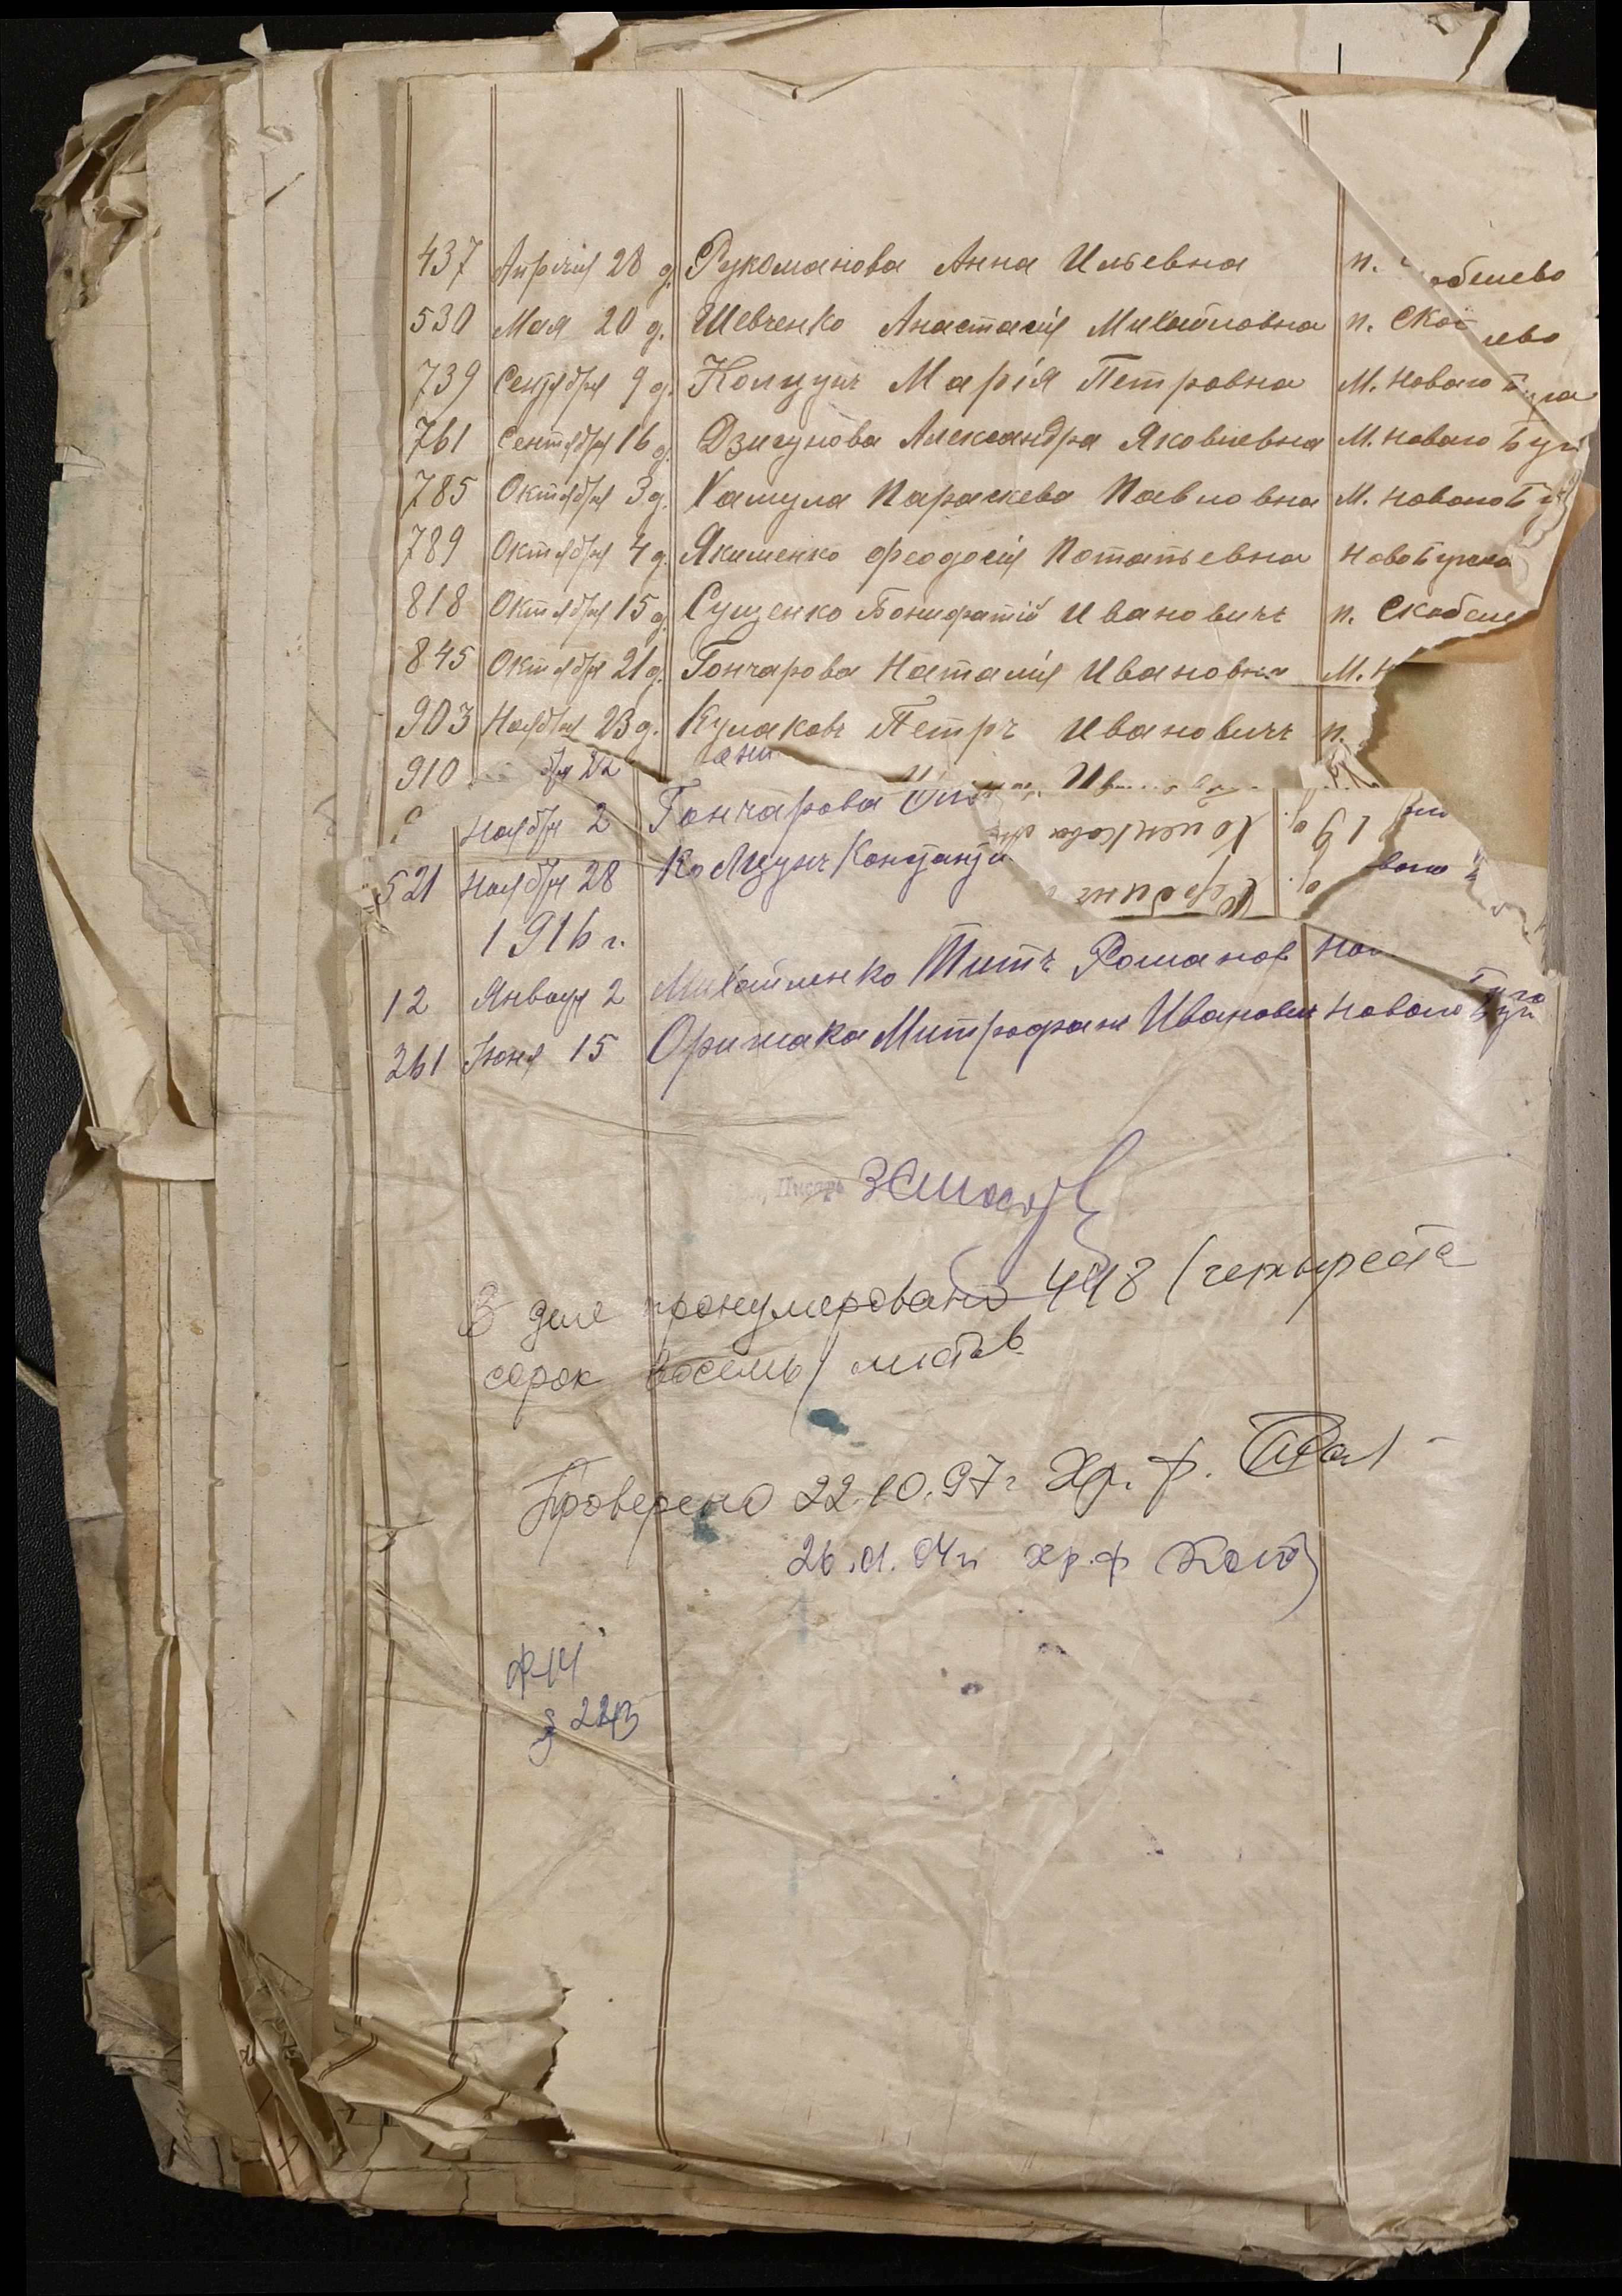 437 Апрѣля 28 д. Рукоманова Анна Ильевна п. обелево
530 Мая 20 д. Шевченко Анастасія Михайловна п. Скоб лево
739 Сентября 9 д. Колцунъ Марія Петровна М. Новаго Буга
761 Сентября 16 д. Дзигунова Александра Яковлевна М. Новаго Буга
785 Октября 3 д. Хамула Параскева Павловна М. Новаго Буг
789 Октября 4 д. Якименко Феодосія Потапьевна Новобугска
818 Октября 15 д. Сущенко Бонифатій Ивановичъ п. Скобеле
845 Октября 21 д. Гончарова Наталія Ивановна М. Н
903 Ноября 23 д. Кулаковъ Петръ Ивановичъ п.
910 бря
Ноября 2 Гончарова
521 Ноября 28 Колцунъ ваго
1916 г.
12 Января 2 Михайленко Титъ Романов Но
261 Іюня 15 Орижака Митрофанъ Иванович Новаго Буга
Писарь
В деле пронумеровано 448 (четыреста
сорок восемь) листов
Проверено 22.10.97 г Хр. ф.
26.01.04 г хр. ф
ф-14